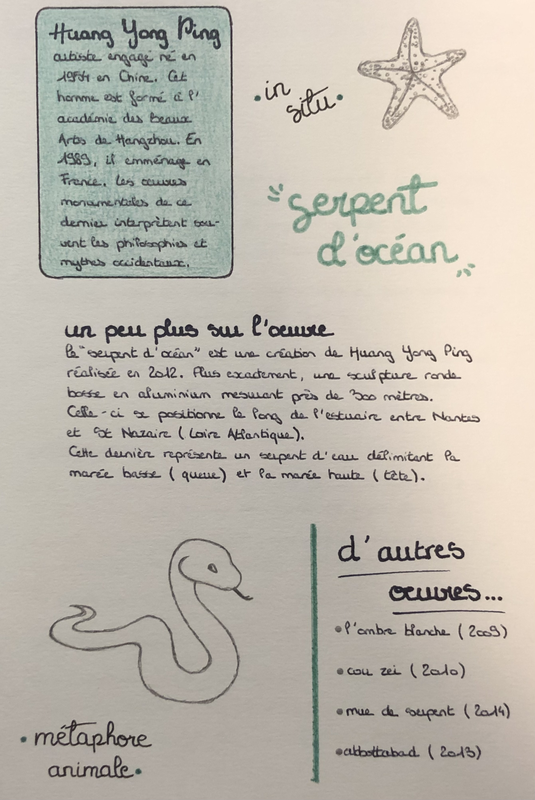 Huang Yong Ping
artiste engagé né en
1954 en Chine. Cet
homme est formé à l'
académie des Beaux
Arts de Hangzhou. En
1989, il emménage en
France. Les œuvres
monumentales de ce
dernier interprètent sou-
vent les philosophies et
mythes occidentaux.
• in
situ •
" serpent
d'océan "
un peu plus sur l'œuvre
le "serpent d'océan" est une création de Huang Yong Ping
réalisée en 2012. Plus exactement, une sculpture ronde
bosse en aluminium mesurant près de 300 mètres.
Celle-ci se positionne le long de l'estuaire entre Nantes
et St Nazaire (Loire Atlantique).
Cette dernière représente un serpent d'eau délimitant la
marée basse (queue) et la marée haute (tête).
d'autres
œuvres...
• l'ombre blanche (2009)
• cou zei (2010)
• mue de serpent (2014)
• abbottabad (2013)
• métaphore
animale •